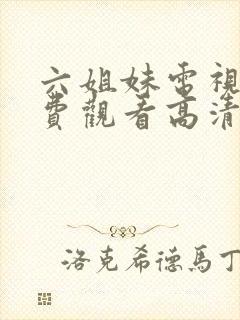 六姐妹電視
費觀看高清
洛克希德馬丁